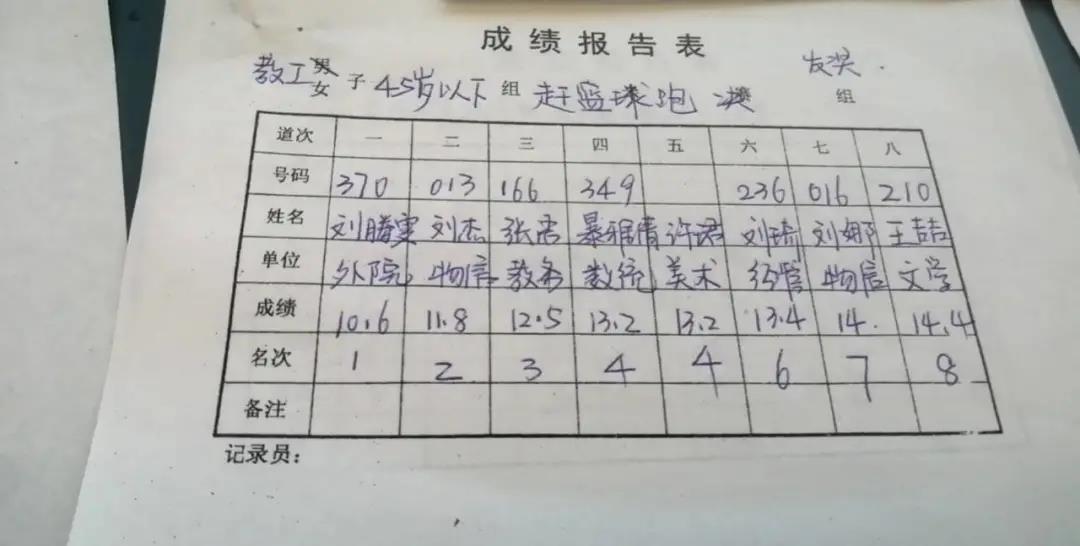 成绩报告表
教工男女子45岁以下组 赶篮球跑 决 发奖.组
道次 一 二 三 四 五 六 七 八
号码 370 013 166 349 236 016 210
姓名 刘腾寞 刘杰 张君 暴雅倩 许珺 刘琦 刘娜 王喆
单位 外院 物信 教务 数统 美术 经管 物信 文学
成绩 10.6 11.8 12.5 13.2 13.2 13.4 14. 14.4
名次 1 2 3 4 4 6 7 8
备注
记录员：